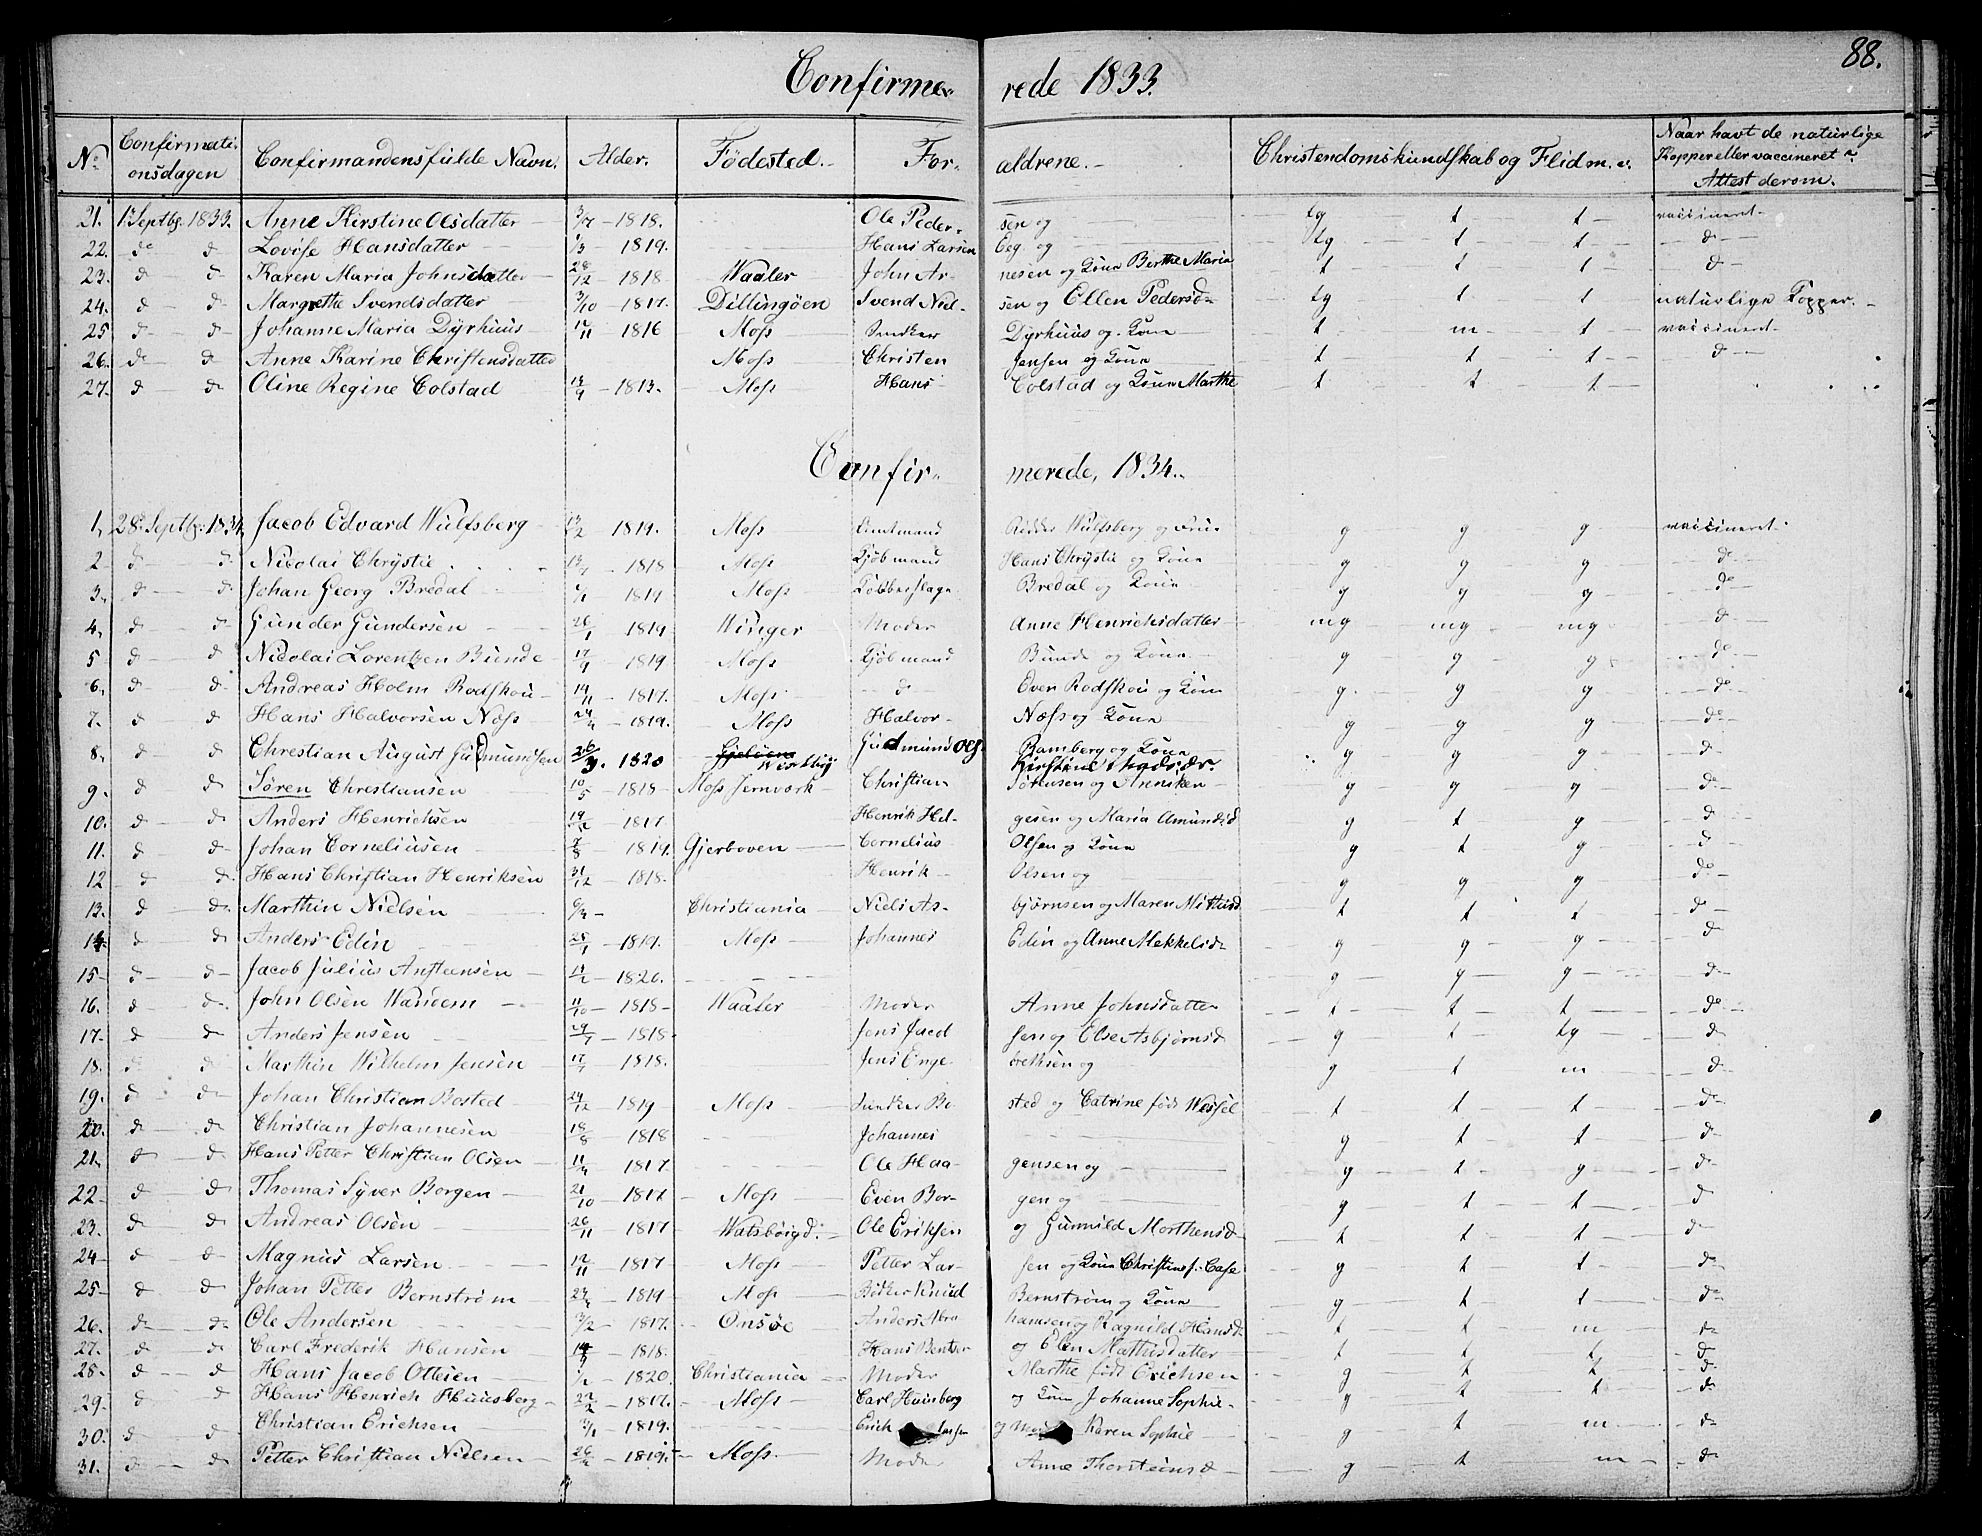 88.
Confirme- rede 1833.
No Confirmati- onsdagen Confirmandens fulde Navn. Alder. Fødested. For- ældrene. Christendomskundskab og Flid m. v. Naar havt de naturlige Kopper eller vaccineret Attest derom.
21. 1 Septbr 1833. Anne Kirstine Olsdatter 3/7 - 1818. Ole Peder- sen og tg t t vaccineret
22. do d Lovise Hansdatter 1/3 1819. Hans Larsen og tg t t d
23. d d Karen Maria Johnsdatter 28/12 - 1818 Waaler John Ar- nesen og Kone Berthe Maria t t t d
24. d d Margrethe Svendsdatter 3/10 - 1817. Dillingøen Svend Niel- sen og Ellen Pedersd tg t t naturlige Kopper.
25 d d Johanne Maria Dyrhuus 12/11 - 1816 Moss Snedker Dyrhuus og Kone t m t vaccineret
26. d d Anne Karine Christensdatter Moss Christen Jensen og Kone t t t d
27. d d Oline Regine Colstad 13/9 - 1813. Moss Hans Colstad og Kone Marthe t t t
Confir- merede, 1834.
1, 28 Septbr 1834 Jacob Edvard Wulfsberg 13/2 1819. Moss Amtmand Ridder Wulfsberg og Frue g g g vaccineret
2 d d Nicolai Chrystie 13/7 - 1818 Moss Kjøbmand Hans Chrystie og Kone g g g do
3, d d Johan Georg Bredal 1819 Moss Kobberslage Bredal og Kone g g g do
4, d d Gunder Gundersen 26/1 1819 Winger Moder Anne Henrichsdatter mg mg mg d
5 d d Nicolai Lorentzen Bunde 17/9 - 1819 Moss Kjøbmand Bunde og Kone g g g do
6, d d Andreas Holm Rodskou 14/11 - 1817. Moss d Even Rodskou og Kone g g g do
7. d d Hans Halvorsen Næss - 1819. Moss Halvor Næss og Kone g g g do
8, d d Chrestian August Gudmundsen 26/3. 1820 Gudmund Ols Ramberg og Kone g g g d
9. d d Søren Chrestiansen 10/5 - 1818 Moss Jernværk Christian Sørensen og Anniken g g g d
10. d d Anders Henrichsen 19/12 - 1817. Henrik Hel- gesen og Maria Amundsd g t g d
11. d d Johan Corneliusen 1819. Gjerboven Cornelius Olsen og Kone g t g d
12 d d Hans Christian Henriksen 31/12 - 1818. Henrik Olsen og g g g do
13. d d Marthin Nielsen Christiania Niels As- bjørnsen og Maren t t t d
14. d d Anders Edin - 1819. Moss Johannes Edin og Anne Mekkelsd g g g d
15 d d Jacob Julius Anstensen - 1820. g g g d
16. d d John Olsen Wandem 11/10 - 1818 Waaler Moder Anne Johnsdatter t t t do
17. d d Anders Jensen 29/7 - 1818. Jens Jacob sen og Else Asbjørnsd g t tg d
18. d d Marthin Wilhelm Jensen 17/7 - 1818. Jens Enge- brethsen og g t m d
19. d d Johan Christian Bosted 29/12 1819 Moss Snedker Bo- sted og Catrine født Wessel t t t d
20. d d Christian Johannesen 18/8 - 1818 Johannes g t t d
21. d d Hans Petter Christian Olsen 1817. Ole Haa- gensen og g t g d
22 d d Thomas Syver Borgen 21/10 - 1817 Moss Even Bor- gen og g t t d
23. d d Andreas Olsen 26/11 - 1817 Watsbøigd. Ole Eriksen og Gunnild Morthensd t t t d
24 d d Magnus Larsen 12/11 - 1817 Moss Petter Lar- sen og Kone Christine f. Case g t t d
25 d d Johan Petter Bernstrøm - 1819 Moss Bødker Knud Bernstrøm og Kone g t t d
26. d d Ole Andersen 3/2 - 1817. Onsøe Anders Abra hamsen og Ragnild Hansd t t m d
27. d d Carl Frederik Hansen 1818. Hans Bentser og Elen Mathisdatter t t t d
28 d d Hans Jacob Ottesen - 1820. Christiania Moder Marthe født Erichsen g t t d
29. d d Hans Henrich Huusberg - 1817. Moss Carl Huusberg og Kone Johanne Sophie g t t d
30. d d Christian Erichsen - 1819. Erich Larsen og Karen Sophie g t m d
31. d d Petter Christian Nielsen - 1819. Moss. Moder Anne Thorsteinsd g t m d